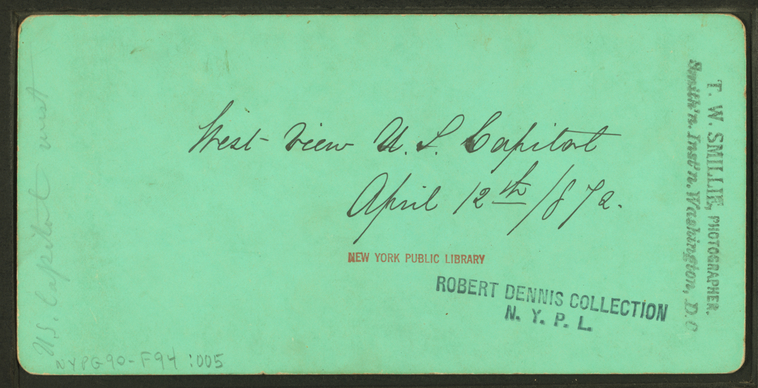 West View U.S. Capitol
April 12th 1872.
NEW YORK PUBLIC LIBRARY
ROBERT DENNIS COLLECTION
N. Y. P. L.
T. W. SMILLIE, PHOTOGRAPHER.
Smith'n. Inst'n. Washington, D.C
U.S. Capitol west
NYPG90-F94 :005